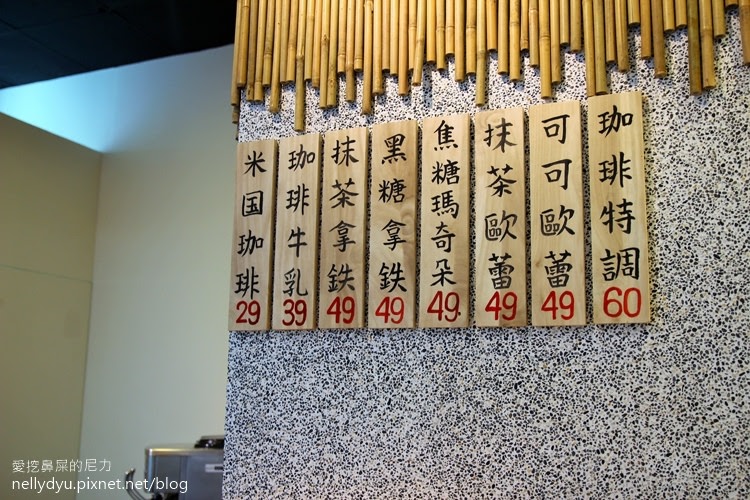 米国珈琲 29
珈琲牛乳 39
抹茶拿鉄 49
黑糖拿鉄 49
焦糖瑪奇朵 49
抹茶歐蕾 49
可可歐蕾 49
珈琲特調 60
愛挖鼻屎的尼力
nellydyu.pixnet.net/blog